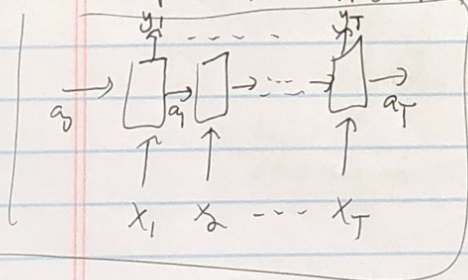 y1 - - - - - yT
a0 a1 - - - aT
x1 x2 - - - - xT